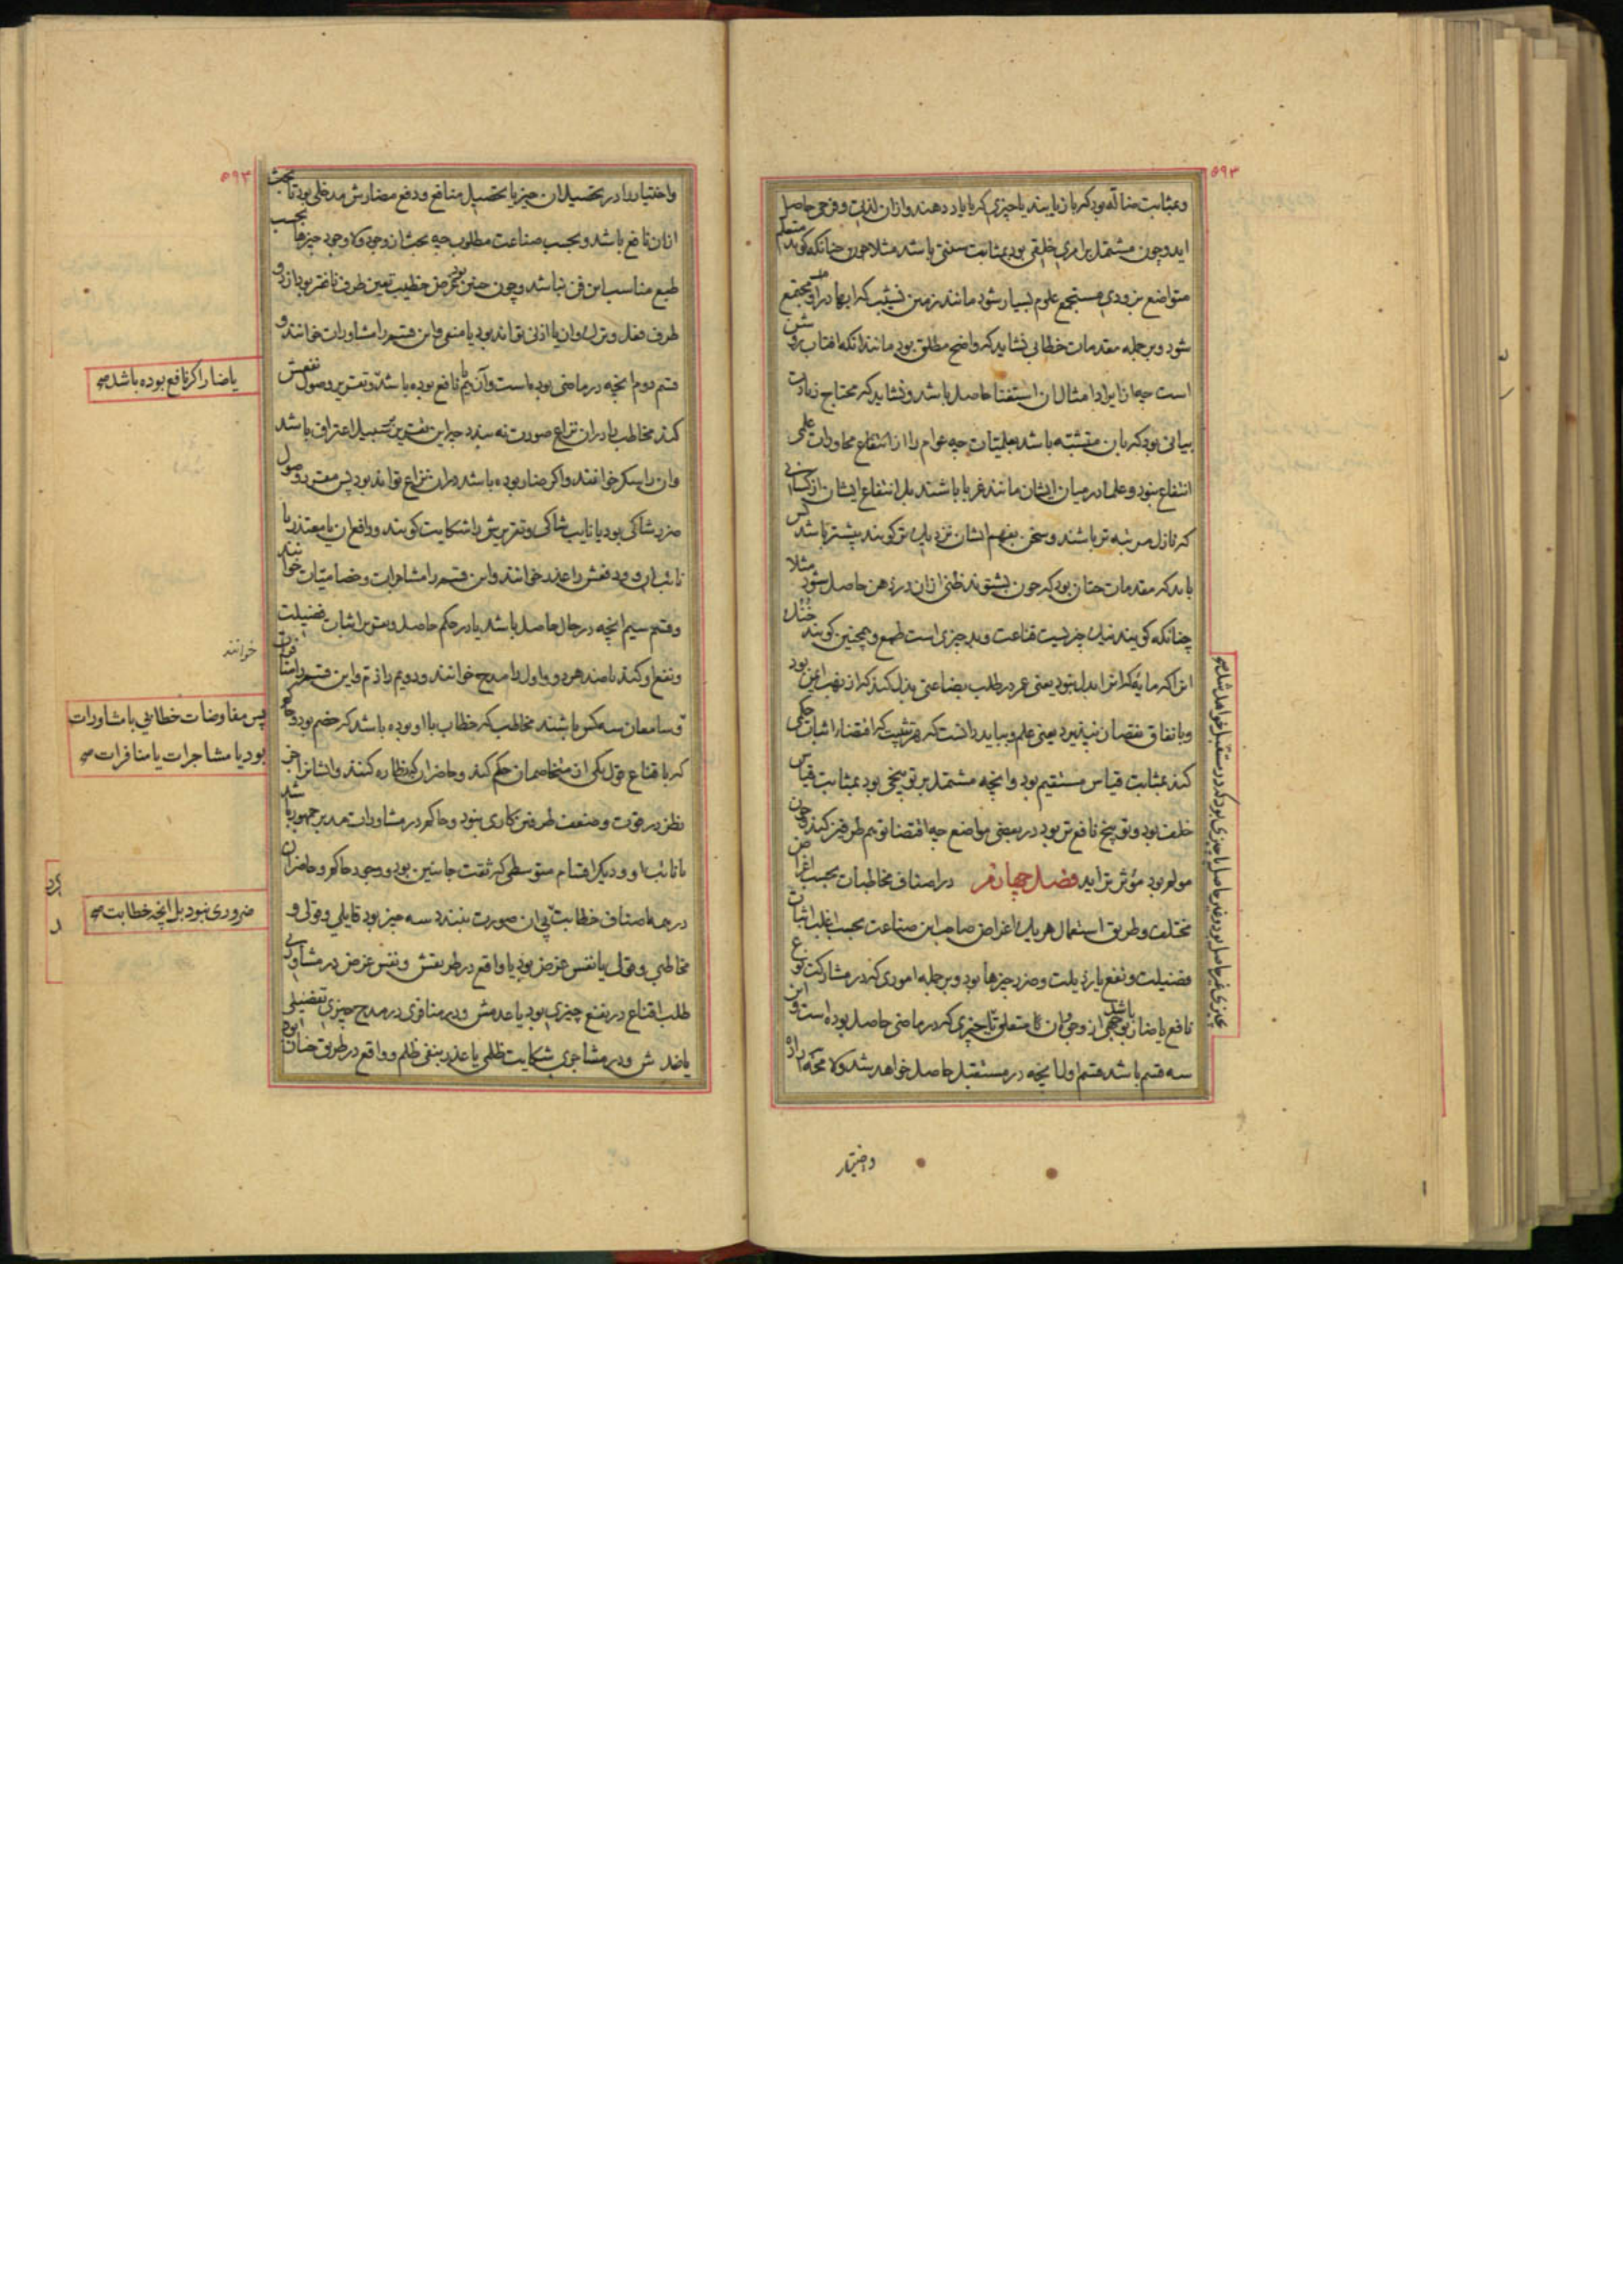 ۵۹۳
وبمثابت ضالّه بود که باز یابند یا چیزی که با یاد دهند وازان لذت وفرحی حاصل
اید وچون مشتمل بر امری خلقی بود بمثابت سنتی باشد مثلا چون چنانکه گویند متعلم
متواضع بزودی مستجمع علوم بسیار شود مانند زمین نشیب که ابها در او مجتمع
شود وبر جمله مقدمات خطابی نشاید که واضح مطلق بود مانند انکه افتاب روشن
است چه از ایراد امثال ان استفتا حاصل باشد ونشاید که محتاج زیادت
بیانی بود که بان متشبه باشد بعلمیات چه عوام را از استماع محاورات علمی
انتفاع نبود وعلما در میان ایشان مانند غربا باشند بل انتفاع ایشان از کسانی
که نازل مرتبه تر باشند وسخن بفهم ایشان نزدیک تر گویند بیشتر باشد پس
باید که مقدمات چنان بود که چون بشنوند ظنی ازان در ذهن حاصل شود مثلا
چنانکه گویند نیک چیزیست قناعت وبد چیزی است طمع وهمچنین گویند خُنُک
انرا که مایهٔ که انرا بدل نبود یعنی عمر در طلب بضاعتی بذل کند که از نهب ایمن بود
وبانفاق نقصان نپذیرد یعنی علم وبباید دانست که هر تثبیت که اقتضاء اثبات حکمی
کند بمثابت قیاس مستقیم بود وانچه مشتمل بر توبیخی بود بمثابت قیاس
خلف بود وتوبیخ نافع تر بود در بعضی مواضع چه اقتضا توهم طرفین کند وچون
مولم بود مؤثر تر اید فصل چهارم در اصناف مخاطبات بحسب اغراض
مختلف وطریق استعمال هر یک اغراض صاحب این صناعت بحسب اغلب اثبات
فضیلت ونفع یا رذیلت وضرر چیزها بود وبر جمله اموری که در مشارکت نوع
نافع یا ضار بود بوجهی از وجوه باشد وان یا متعلق بچیزی که در ماضی حاصل بوده است واین
سه قسم باشد قسم اول انچه در مستقبل حاصل خواهد شد ولا محاله اراده
واختیار
۵۹۴
واختیار را در تحصیل ان چیز یا تحصیل منافع ودفع مضارش مدخلی بود تا بحث
ازان نافع باشد وبحسب صناعت مطلوب چه بحث از وجود ولا وجود چیزها بحسب
طبع مناسب این فن نباشد وچون چنین بود غرض خطیب تعیین طرف نافع تر بود از دو
طرف فعل وترک وان یا اذنی تواند بود یا منعی واین قسم را مشاورات خوانند و
قسم دوم انچه در ماضی بوده است وآن هم نافع بوده باشد وتقریر وصول نفعش
کند مخاطب را دران نزاع صورت نه بندد چه این تقریر بر سبیل اعتراف باشد
وان را شکر خوانند واگر ضار بوده باشد دران نزاع تواند بود پس مقرر وصول
ضرر شاکی بود یا نایب شاکی وتقریرش را شکایت گویند ودافع ان یا معتذر یا
نائب او ودفعش را عذر خوانند واین قسم را مشاجرات وخصامیات خوانند
وقسم سیم انچه در حال حاصل باشد یا در حکم حاصل ومقرر اثبات فضیلت
ونفع او کند یا ضد هر دو واول را مدح خوانند ودویم را ذم واین قسم را منافرات
وسامعان سه کس باشند مخاطب که خطاب با او بوده باشد که خصم بود وحاکم
که باقناع قول یکی از متخاصمان حکم کند وحاضران که نظاره کنند وایشانرا جز
نظر در قوت وضعف طرفین کاری نبود وحاکم در مشاورات مدبر جمهور باشد
یا نائب او ودیگر اقسام متوسطی که ثقت جانبین بود ووجود حاکم وحاضران
در همه اصناف خطابت بی ان صورت نبندد سه چیز بود قایلی وقولی و
مخاطبی وقول یا نفس غرض بود یا واقع در طریقش ونفس غرض در مشاوری
طلب اقناع در نفع چیزی بود یا عدمش ودر منافری در مدح چیزی بتفضیلی
یا ضدش ودر مشاجری شکایت ظلمی یا عذر بنفی ظلم وواقع در طریق چنان بود
یا ضار اگر نافع بوده باشد صح
خوانند
پس مفاوضات خطابی یا مشاورات
بود یا مشاجرات یا منافرات صح
ضروری نبود بل انچه خطابت صح